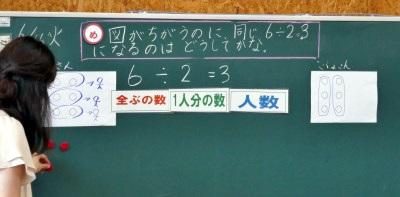 め 図がちがうのに、同じ6÷2=3
になるのは どうしてかな。
6 ÷ 2 = 3
全ぶの数 1人分の数 人数